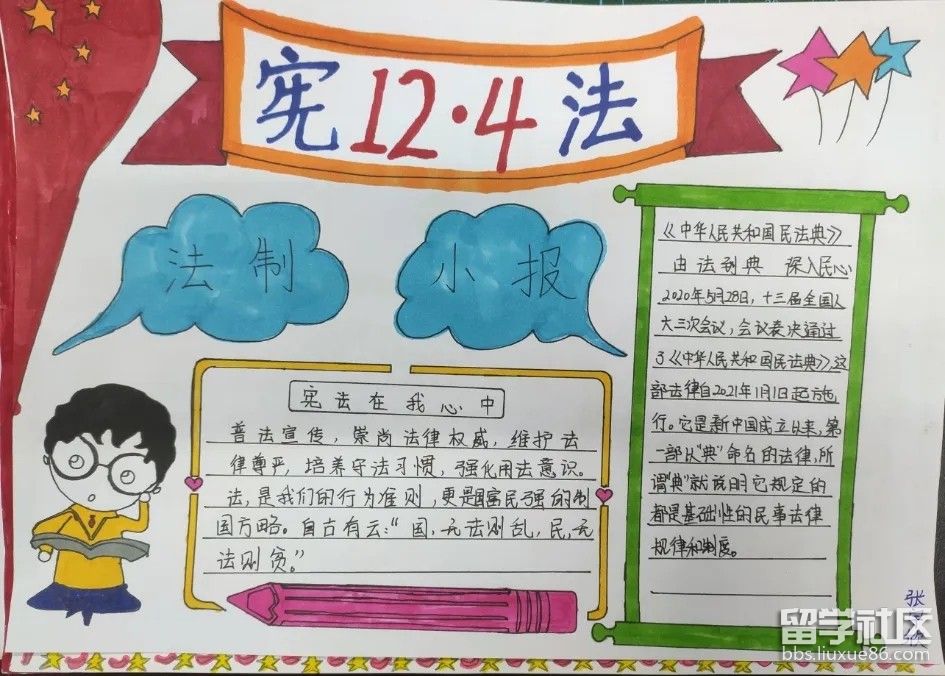 宪12·4法
法制
小报
宪法在我心中
普法宣传，崇尚法律权威，维护法
律尊严，培养守法习惯，强化用法意识。
法，是我们的行为准则，更是国富民强的制
国方略。自古有云：“国，无法则乱，民，无
法则贫。”
《中华人民共和国民法典》
由法到典 深入民心
2020年5月28日，十三届全国人
大三次会议，会议表决通过
了《中华人民共和国民法典》，这
部法律自2021年1月1日起施
行。它是新中国成立以来，第
一部以“典”命名的法律，所
谓“典”就说明它规定的
都是基础性的民事法律
规律和制度。
张
欣
留学社区
bbs.liuxue86.com